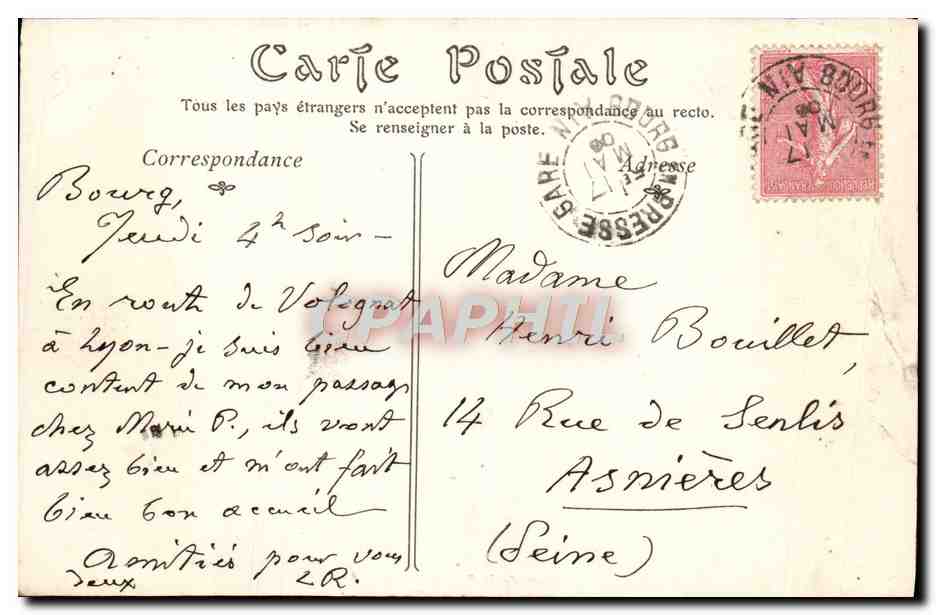 Carte Postale
Tous les pays étrangers n'acceptent pas la correspondance au recto.
Se renseigner à la poste.
Correspondance
Bourg,
Jeudi 4h soir -
En route de Volognat
à Lyon - je suis bien
content de mon passage
chez Marie P., ils vont
assez bien et m'ont fait
bien bon accueil
Amitiés pour vous
deux
LR.
Adresse
Madame
Henri Bouillet,
14 Rue de Senlis
Asnières
(Seine)
BOURG-EN-BRESSE GARE AIN
17
MAI
06
BOURG AIN
17
MAI
06
REPUBLIQUE FRANÇAISE
CPAPHIL